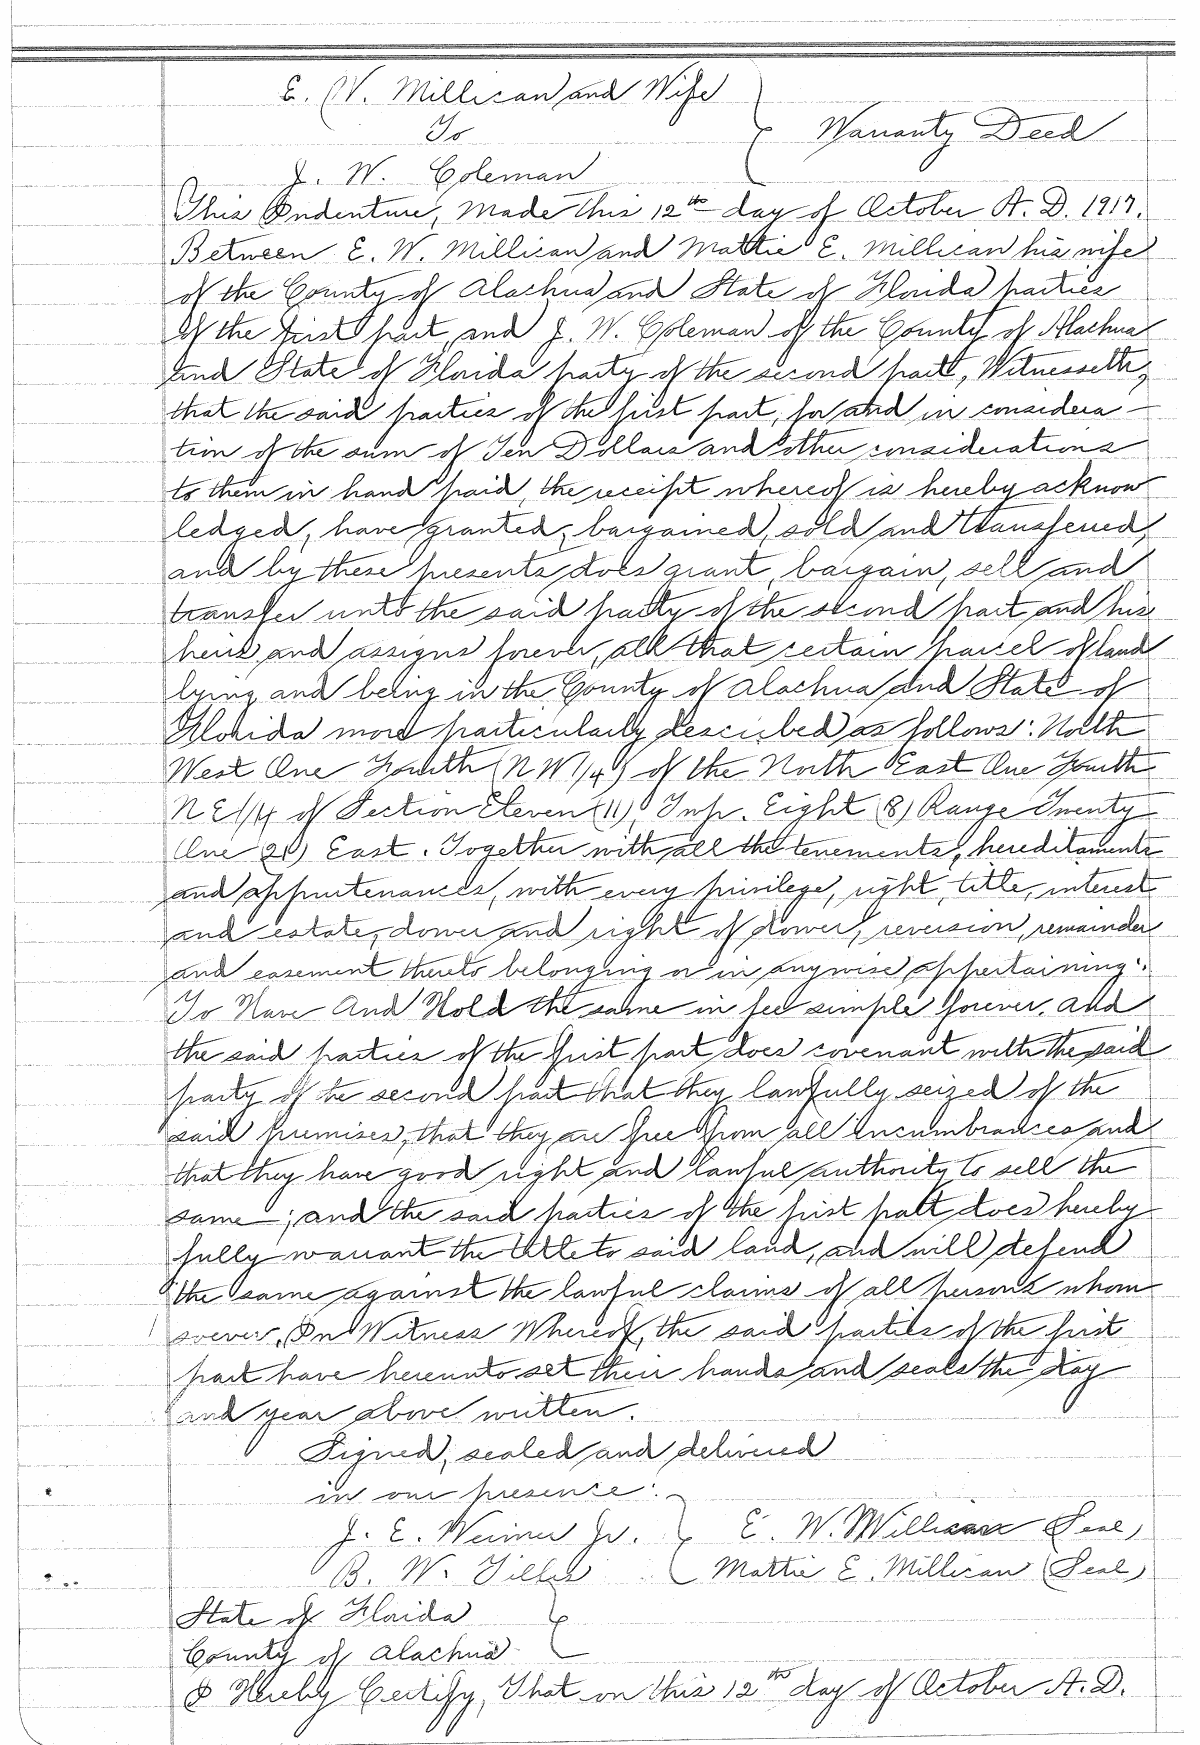 E. W. Millican and Wife
To
Warranty Deed
J. W. Coleman
This Indenture, Made this 12th day of October A. D. 1917.
Between E. W. Millican and Mattie E. Millican his wife
of the County of Alachua and State of Florida parties
of the first part, and J. W. Coleman of the County of Alachua
and State of Florida party of the second part, Witnesseth,
that the said parties of the first part, for and in considera-
tion of the sum of Ten Dollars and other considerations
to them in hand paid, the receipt whereof is hereby acknow
ledged, have granted, bargained, sold and transferred,
and by these presents does grant, bargain, sell and
transfer unto the said party of the second part and his
heirs and assigns forever, all that certain parcel of land
lying and being in the County of Alachua and State of
Florida more particularly described as follows: North
West One Fourth (NW1/4) of the North East One Fourth
NE1/4 of Section Eleven (11), Twp. Eight (8) Range Twenty
One (21) East. Together with all the tenements, hereditaments
and appurtenances, with every privilege, right, title, interest
and estate, dower and right of dower, reversion, remainder
and easement thereto belonging or in anywise appertaining:.
To Have And Hold the same in fee simple forever. And
the said parties of the first part does covenant with the said
party of the second part that they lawfully seized of the
said premises, that they are free from all incumbrances and
that they have good right and lawful authority to sell the
same; and the said parties of the first part does hereby
fully warrant the title to said land, and will defend
the same against the lawful claims of all persons whom
soever. In Witness Whereof, the said parties of the first
part have hereunto set their hands and seals the day
and year above written.
Signed, sealed and delivered
in our presence:
J. E. Weimer Jr. E. W. Millican (Seal)
B. W. Tillis Mattie E. Millican (Seal)
State of Florida
County of Alachua
I Hereby Certify, That on this 12th day of October A. D.